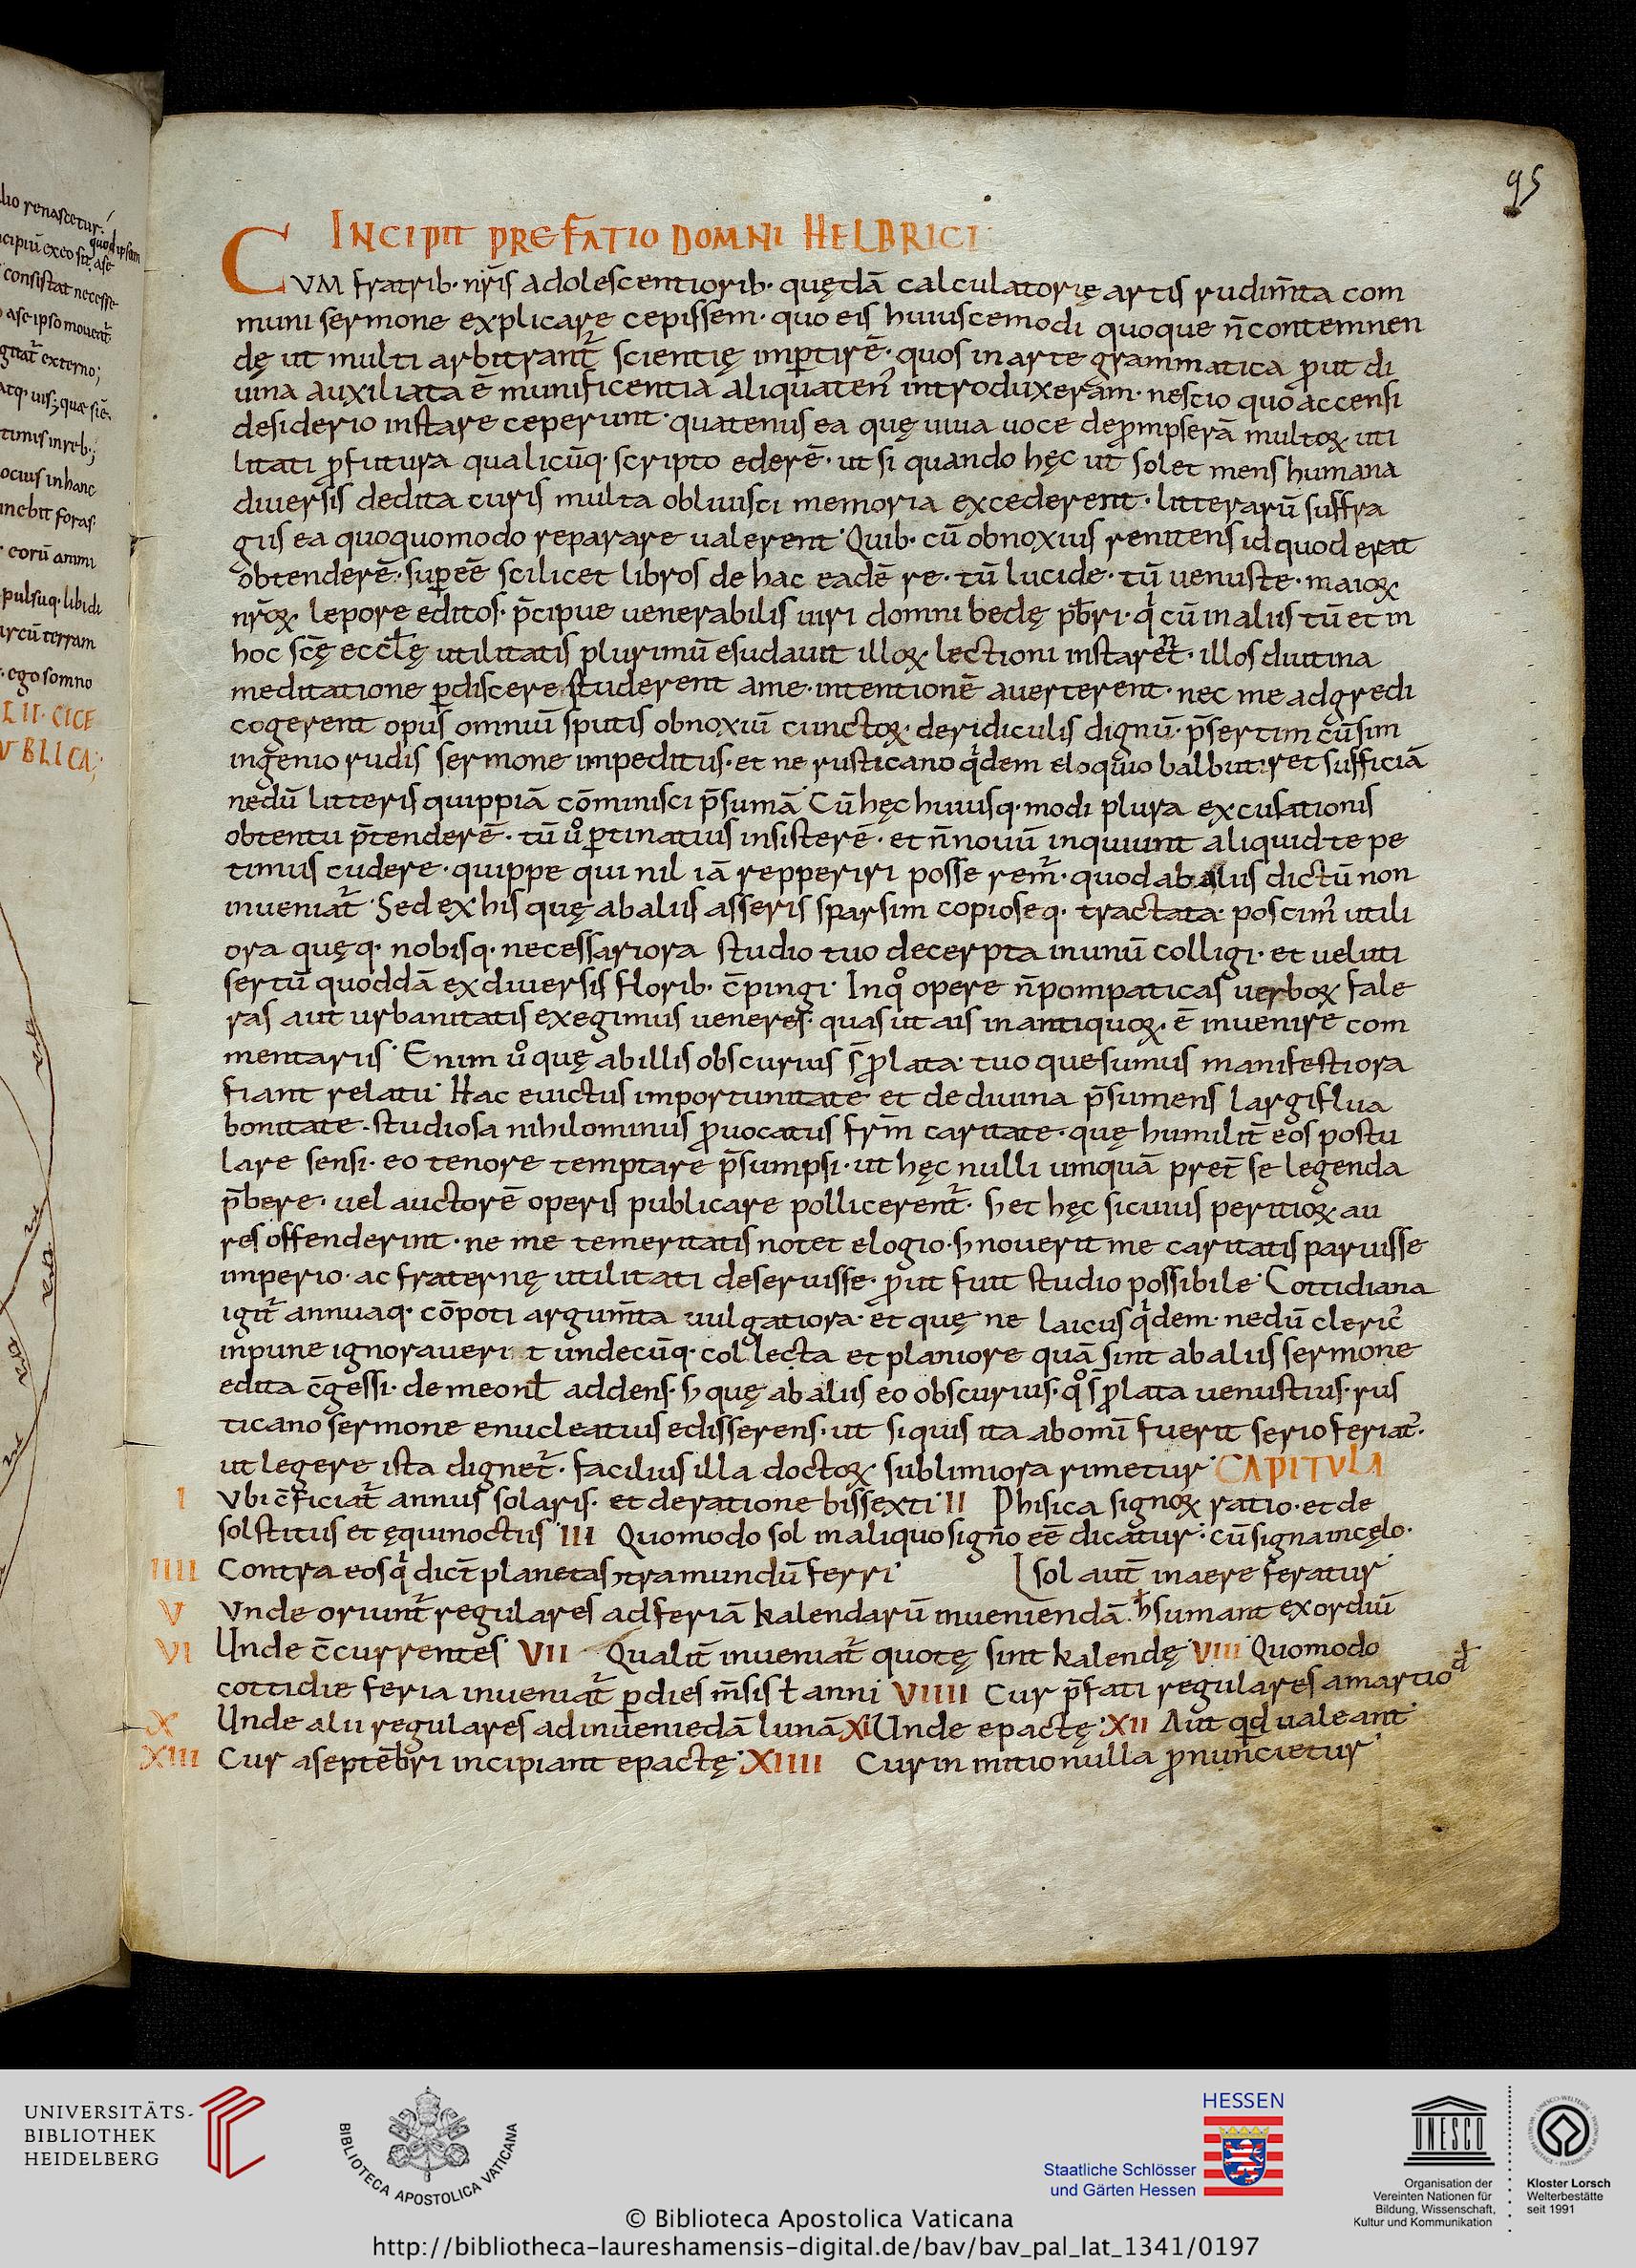 95
INCIPIT PREFATIO DOMNI HELBRICI
CVM fratrib· nr̄is adolescentiorib· quędā calculatorię artis rudim̄ta com
muni sermone explicare cepissem· quo eis huiuscemodi quoque n̄ contemnen
dę ut multi arbitrant᷑ scientię imꝑtirē· quos in arte grammatica ꝓut di
uina auxiliata ē munificentia aliquaten᷒ introduxeram· nescio quo accensi
desiderio instare ceperunt· quatenus ea quę uiua uoce deꝓmpserā multoꝝ uti
litati ꝓfutura qualicūq· scripto ederē· ut si quando hęc ut solet mens humana
diuersis dedita curis multa obliuisci memoria excederent· litterarū suffra
giis ea quoquomodo reparare ualerent· Quib· cū obnoxius renitens id quod erat
obtenderē· suꝑeē scilicet libros de hac eadē re· tū lucide· tū uenuste· maioꝝ
nr̄oꝝ lepore editos· p̄cipue uenerabilis uiri domni bedę pb̄ri· qͥ cū in aliis tū et in
hoc scę̄ eccl̄ę utilitatis plurimū esudauit illoꝝ lectioni instarent· illos diutina
meditatione ꝑdiscere studerent a me· intentionē auerterent· nec me adgredi
cogerent opus omniū sputis obnoxiū cunctoꝝ· deridiculis dignū· p̄sertim cū sim
ingenio rudis sermone impeditus· et ne rusticano qͥdem eloquio balbutiret sufficiā
nedū litteris quippiā cōminisci p̄sumā· Cū hęc huiusq· modi plura excusationis
obtentu p̄tenderē· tū uͦ ꝑtinatius insisterē· et n̄ nouū inquiunt aliquid te pe
timus cudere· quippe qui nil iā repperiri posse rem̄· quod ab aliis dictū non
inueniat᷑· Sed ex his quę ab aliis asseris sparsim copioseq· tractata· poscim᷒ utili
ora quęq· nobisq· necessariora studio tuo decerpta in unū colligi· et ueluti
sertū quoddā ex diuersis florib· c̄pingi· In qͦ opere n̄ pompaticas uerboꝝ fale
ras aut urbanitatis exegimus ueneres· quas ut ais in antiquoꝝ· ē inuenire com
mentariis· Enim uͦ quę ab illis obscurius s̄ ꝓlata· tuo quesumus manifestiora
fiant relatu· Hac euictus importunitate et de diuina p̄sumens largiflua
bonitate· studiosa nihilominus ꝓuocatus frm̄ caritate· quę humilit̄ eos postu
lare sensi· eo tenore temptare p̄sumpsi· ut hęc nulli umquā pret̄ se legenda
p̄bere· uel auctorē operis publicare pollicerent᷑· ꜧ et hęc si cuius peritioꝝ au
res offenderint· ne me temeritatis notet elogio· ꜧ nouerit me caritatis paruisse
imperio· ac fraternę utilitati deseruisse· ꝓut fuit studio possibile· Cottidiana
igit᷑ annuaq· cōpoti argum̄ta uulgatiora· et quę ne laicus qͥdem· nedū cleric᷒
inpune ignorauerit undecūq· collecta et planiore quā sint ab aliis sermone
edita c̄gessi· de meo nł addens· ꜧ quę ab aliis eo obscurius· qͦ s̄ ꝓlata uenustius· rus
ticano sermone enucleatius edisserens· ut siquis ita ab omī fuerit serio feriat᷒·
ut legere ista dignet᷑· facilius illa doctoꝝ sublimiora rimetur· CAPITVLA
I Vbi c̄ficiat᷑ annus solaris· et de ratione bissexti· II Phisica signoꝝ ratio· et de
solstitiis et ęquinoctiis· III Quomodo sol in aliquo signo eē dicatur· cū signa in cęlo·
IIII Contra eos qͥ dict̄ planetas ꜧtra mundū ferri· sol aut̄ in aere feratur·
V Vnde oriunt᷑ regulares ad feriā kalendarū inueniendā· sumant exordiū
VI Unde c̄currentes· VII Qualit̄ inueniat᷑ quotę sint kalendę· VIII Quomodo
cottidie feria inueniat᷑ ꝑ dies m̄sis ł anni VIIII Cur p̄fati regulares a martio
X Unde alii regulares ad inueniedā lunā XI Unde epactę· XII Aut qd ualeant·
XIII Cur a septēbri incipiant epactę· XIIII Cur in initio nulla ꝓnuncietur·
UNIVERSITÄTS-
BIBLIOTHEK
HEIDELBERG
BIBLIOTECA APOSTOLICA VATICANA
HESSEN
Staatliche Schlösser
und Gärten Hessen
UNESCO
Organisation der
Vereinten Nationen für
Bildung, Wissenschaft,
Kultur und Kommunikation
Kloster Lorsch
Welterbestätte
seit 1991
© Biblioteca Apostolica Vaticana
http://bibliotheca-laureshamensis-digital.de/bav/bav_pal_lat_1341/0197